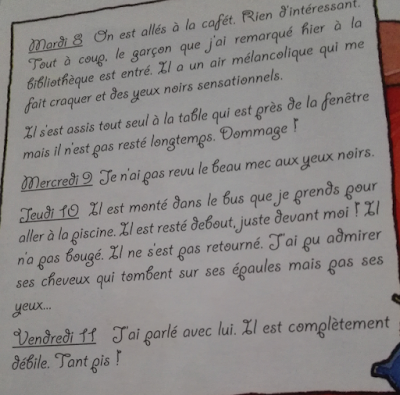 Mardi 8 On est allés à la cafét. Rien d'intéressant.
Tout à coup, le garçon que j'ai remarqué hier à la
bibliothèque est entré. Il a un air mélancolique qui me
fait craquer et des yeux noirs sensationnels.
Il s'est assis tout seul à la table qui est près de la fenêtre
mais il n'est pas resté longtemps. Dommage !
Mercredi 9 Je n'ai pas revu le beau mec aux yeux noirs.
Jeudi 10 Il est monté dans le bus que je prends pour
aller à la piscine. Il est resté debout, juste devant moi ! Il
n'a pas bougé. Il ne s'est pas retourné. J'ai pu admirer
ses cheveux qui tombent sur ses épaules mais pas ses
yeux...
Vendredi 11 J'ai parlé avec lui. Il est complètement
débile. Tant pis !